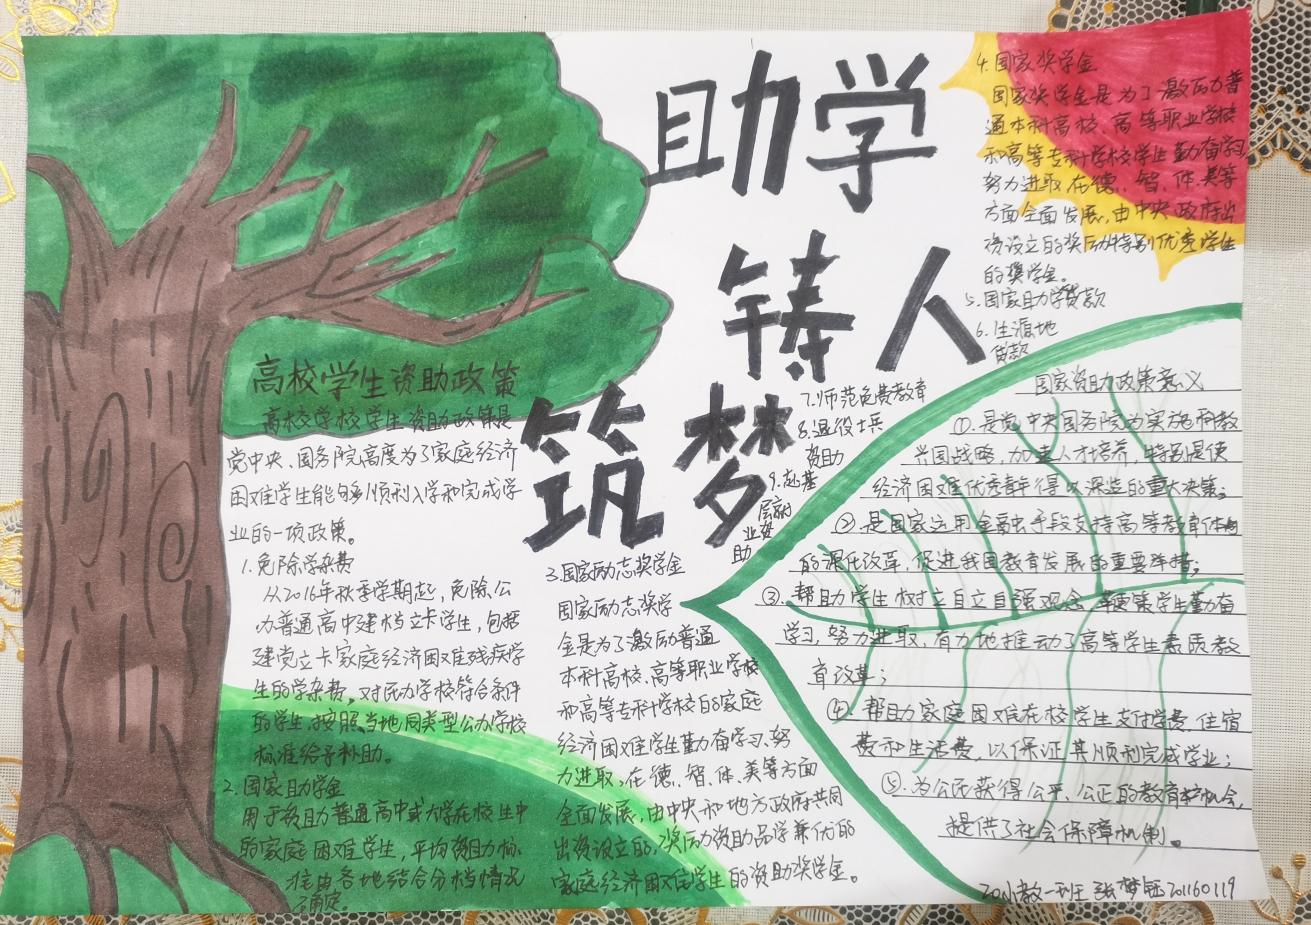 助学
铸人
筑梦
高校学生资助政策
高校学校学生资助政策是
党中央、国务院高度为了家庭经济
困难学生能够顺利入学和完成学
业的一项政策。
1.免除学杂费
从2016年秋季学期起,免除公
办普通高中建档立卡学生,包括
建党立卡家庭经济困难残疾学
生的学杂费,对民办学校符合条件
的学生,按照当地同类型公办学校
标准给予补助。
2.国家助学金
用于资助普通高中或大学在校生中
的家庭困难学生,平均资助标
准由各地结合分档情况
确定。
3.国家励志奖学金
国家励志奖学
金是为了激励普通
本科高校、高等职业学校
和高等专科学校的家庭
经济困难学生勤奋学习、努
力进取,在德、智、体、美等方面
全面发展,由中央和地方政府共同
出资设立的,奖励资助品学兼优的
家庭经济困难学生的资助奖学金。
4.国家奖学金
国家奖学金是为了激励普
通本科高校、高等职业学校
和高等专科学校学生勤奋学习,
努力进取,在德、智、体、美等
方面全面发展,由中央政府出
资设立的奖励特别优秀学生
的奖学金。
5.国家助学贷款
6.生源地
贷款
7.师范免费教育
8.退役士兵
资助
9.赴基
层就
业资
助
国家资助政策意义
①.是党中央国务院为实施科教
兴国战略,加速人才培养,特别是使
经济困难优秀青年得以深造的重大决策;
②是国家运用金融手段支持高等教育体
的深化改革,促进我国教育发展的重要举措;
③.帮助学生树立自立自强观念,鞭策学生勤奋
学习,努力进取,有力地推动了高等学生素质教
育改革;
④.帮助家庭困难在校学生支付学费、住宿
费和生活费,以保证其顺利完成学业;
⑤.为公民获得公平、公正的教育机会,
提供了社会保障机制。
20小教一班 张梦钰201160119